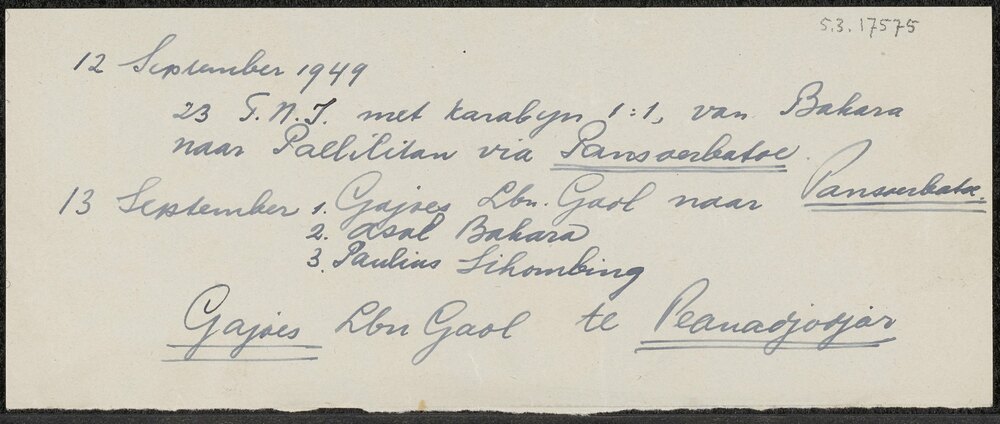 5.3.17575
12 September 1949
23 T.N.I. met karabyn 1:1, van Bakara
naar Paellilitan via Pansoerbatoe.
13 September 1. Gajoes Lbn. Gaol naar Pansoerbatoe.
2. asal Bakara
3. Paulius Sihombing
Gajoes Lbn Gaol te Peanadjodjar